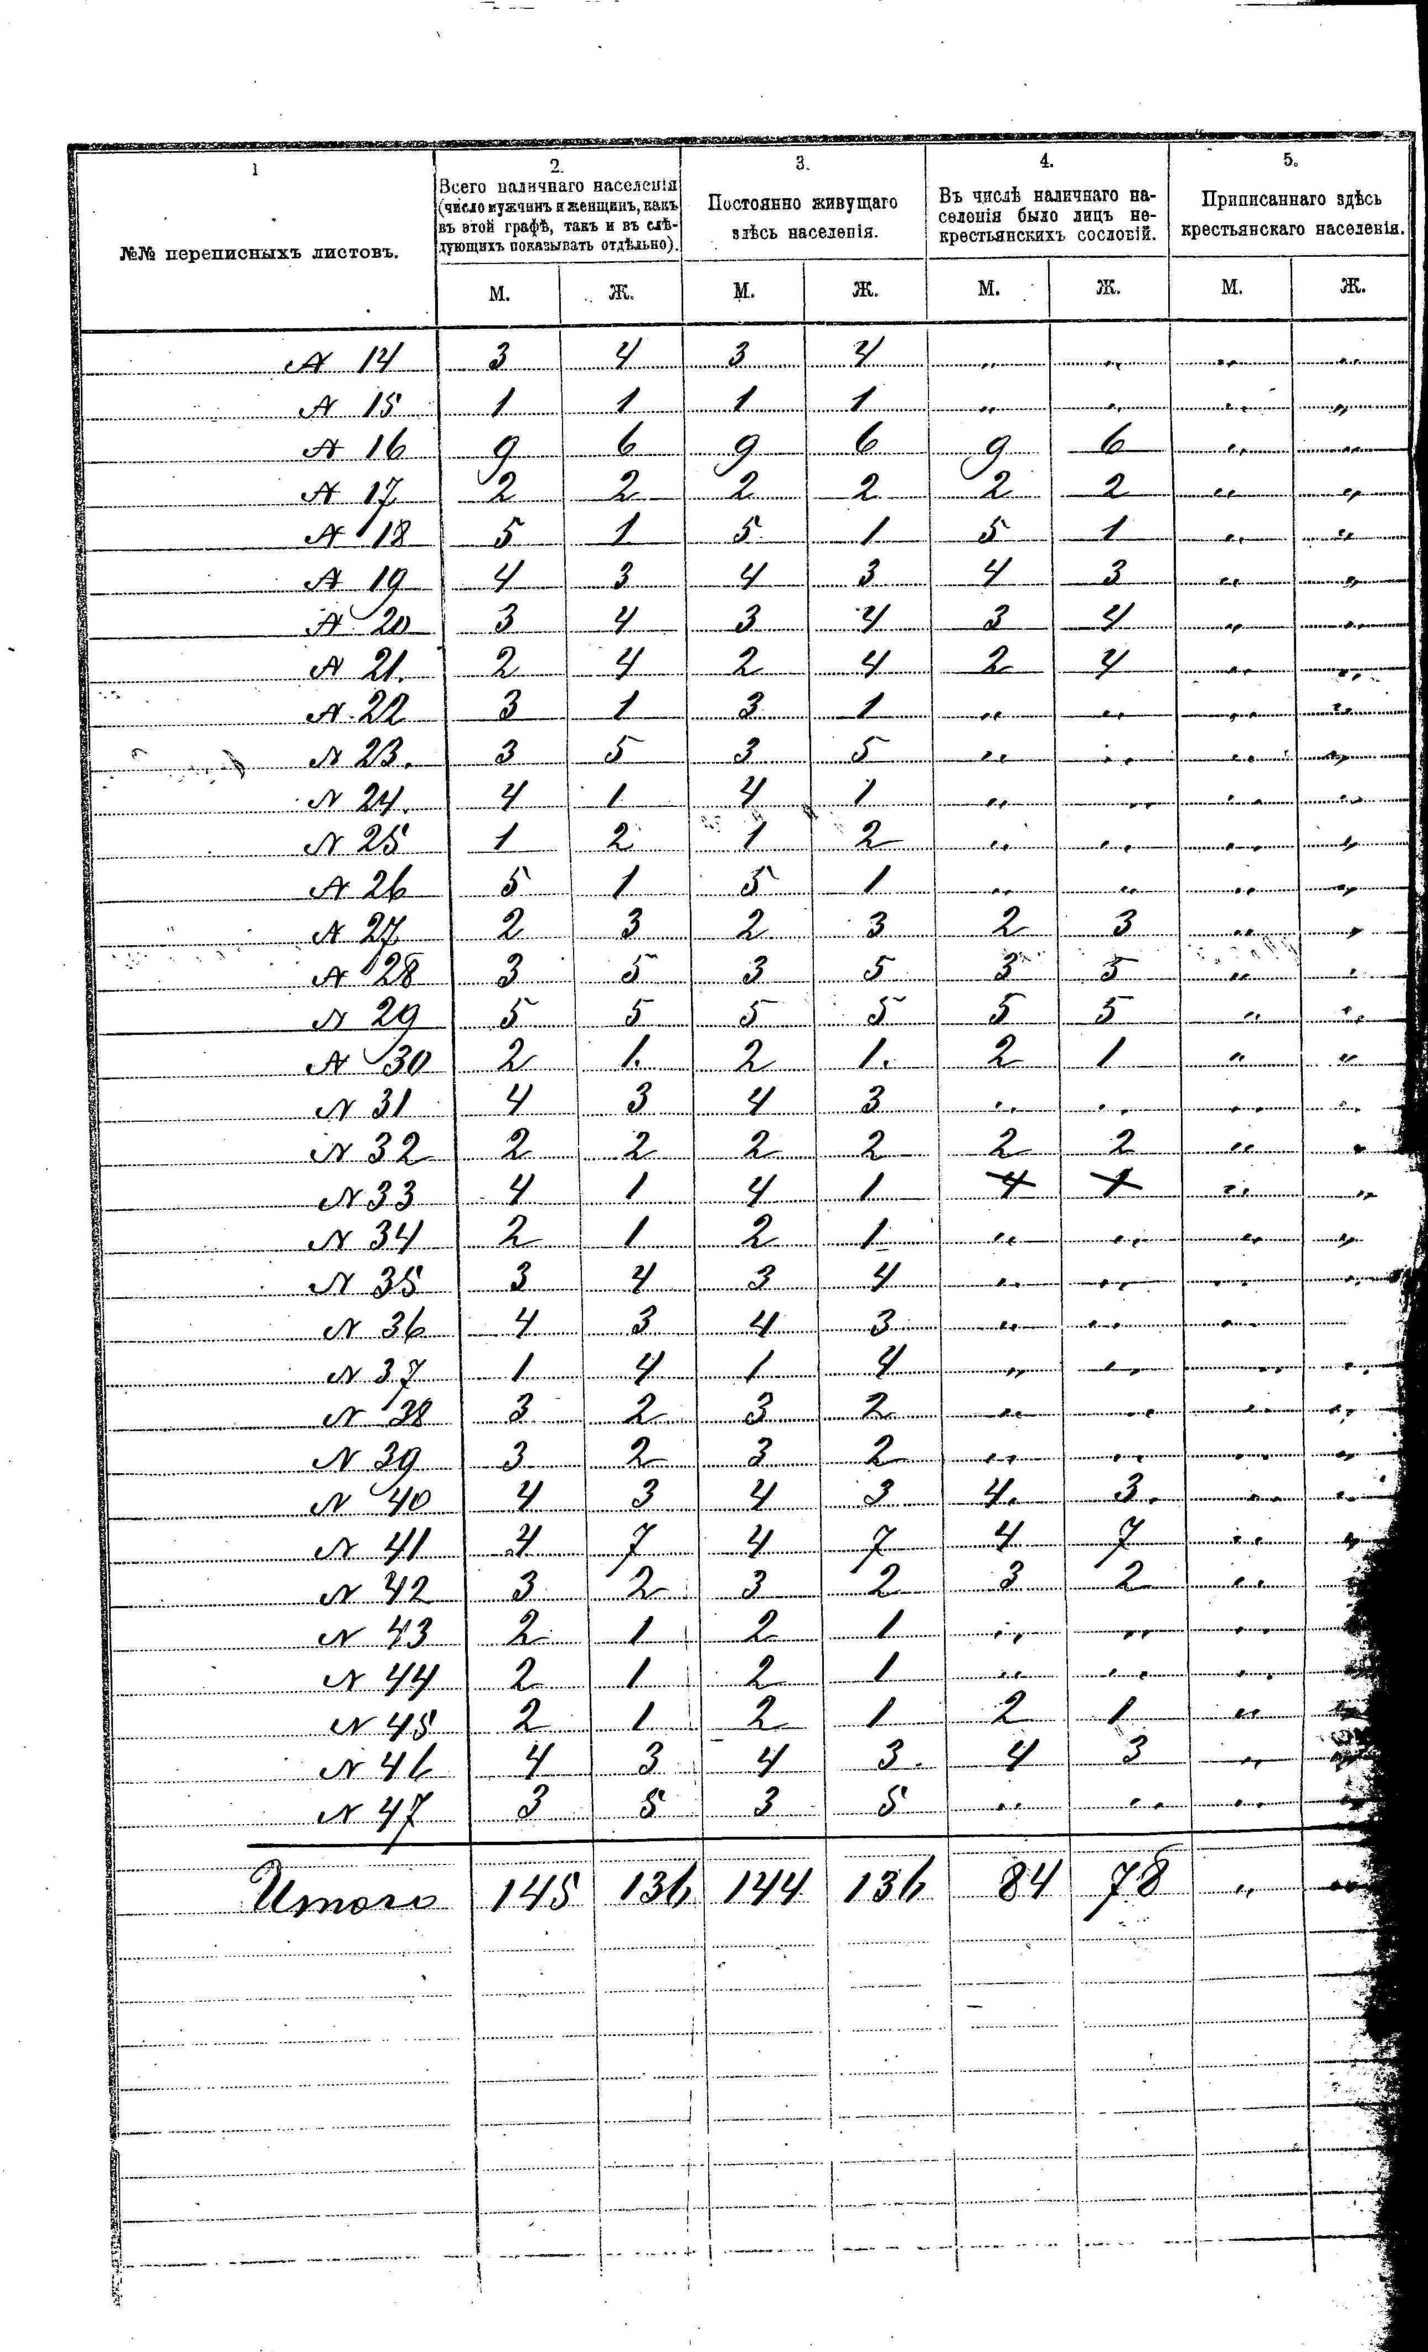 1 2. 3. 4. 5.
№№ переписныхъ листовъ.
Всего наличнаго населенія
(число мужчинъ и женщинъ, какъ
въ этой графѣ, такъ и въ слѣ-
дующихъ показывать отдѣльно).
Постоянно живущаго
здѣсь населенія.
Въ числѣ наличнаго на-
селенія было лицъ не-
крестьянскихъ сословій.
Приписаннаго здѣсь
крестьянскаго населенія.
М. Ж. М. Ж. М. Ж. М. Ж.
№ 14 3 4 3 4 „ „ „ „
№ 15 1 1 1 1 „ „ „ „
№ 16 9 6 9 6 9 6 „ „
№ 17 2 2 2 2 2 2 „ „
№ 18 5 1 5 1 5 1 „ „
№ 19 4 3 4 3 4 3 „ „
№ 20 3 4 3 4 3 4 „ „
№ 21. 2 4 2 4 2 4 „ „
№ 22 3 1 3 1 „ „ „ „
№ 23. 3 5 3 5 „ „ „ „
№ 24. 4 1 4 1 „ „ „ „
№ 25 1 2 1 2 „ „ „ „
№ 26 5 1 5 1 „ „ „ „
№ 27 2 3 2 3 2 3 „ „
№ 28 3 5 3 5 3 5 „ „
№ 29 5 5 5 5 5 5 „ „
№ 30 2 1. 2 1. 2 1 „ „
№ 31 4 3 4 3 „ „ „ „
№ 32 2 2 2 2 2 2 „ „
№ 33 4 1 4 1 4 1 „ „
№ 34 2 1 2 1 „ „ „ „
№ 35 3 4 3 4 „ „ „ „
№ 36 4 3 4 3 „ „ „
№ 37 1 4 1 4 „ „ „ „
№ 38 3 2 3 2 „ „ „ „
№ 39 3 2 3 2 „ „ „ „
№ 40 4 3 4 3 4. 3. „ „
№ 41 4 7 4 7 4 7 „ „
№ 42 3 2 3 2 3 2 „
№ 43 2 1 2 1 „ „ „
№ 44 2 1 2 1 „ „ „
№ 45 2 1 2 1 2 1 „
№ 46 4 3 4 3. 4 3 „
№ 47 3 5 3 5 „ „ „
Итого 145 136 144 136 84 78 „ „